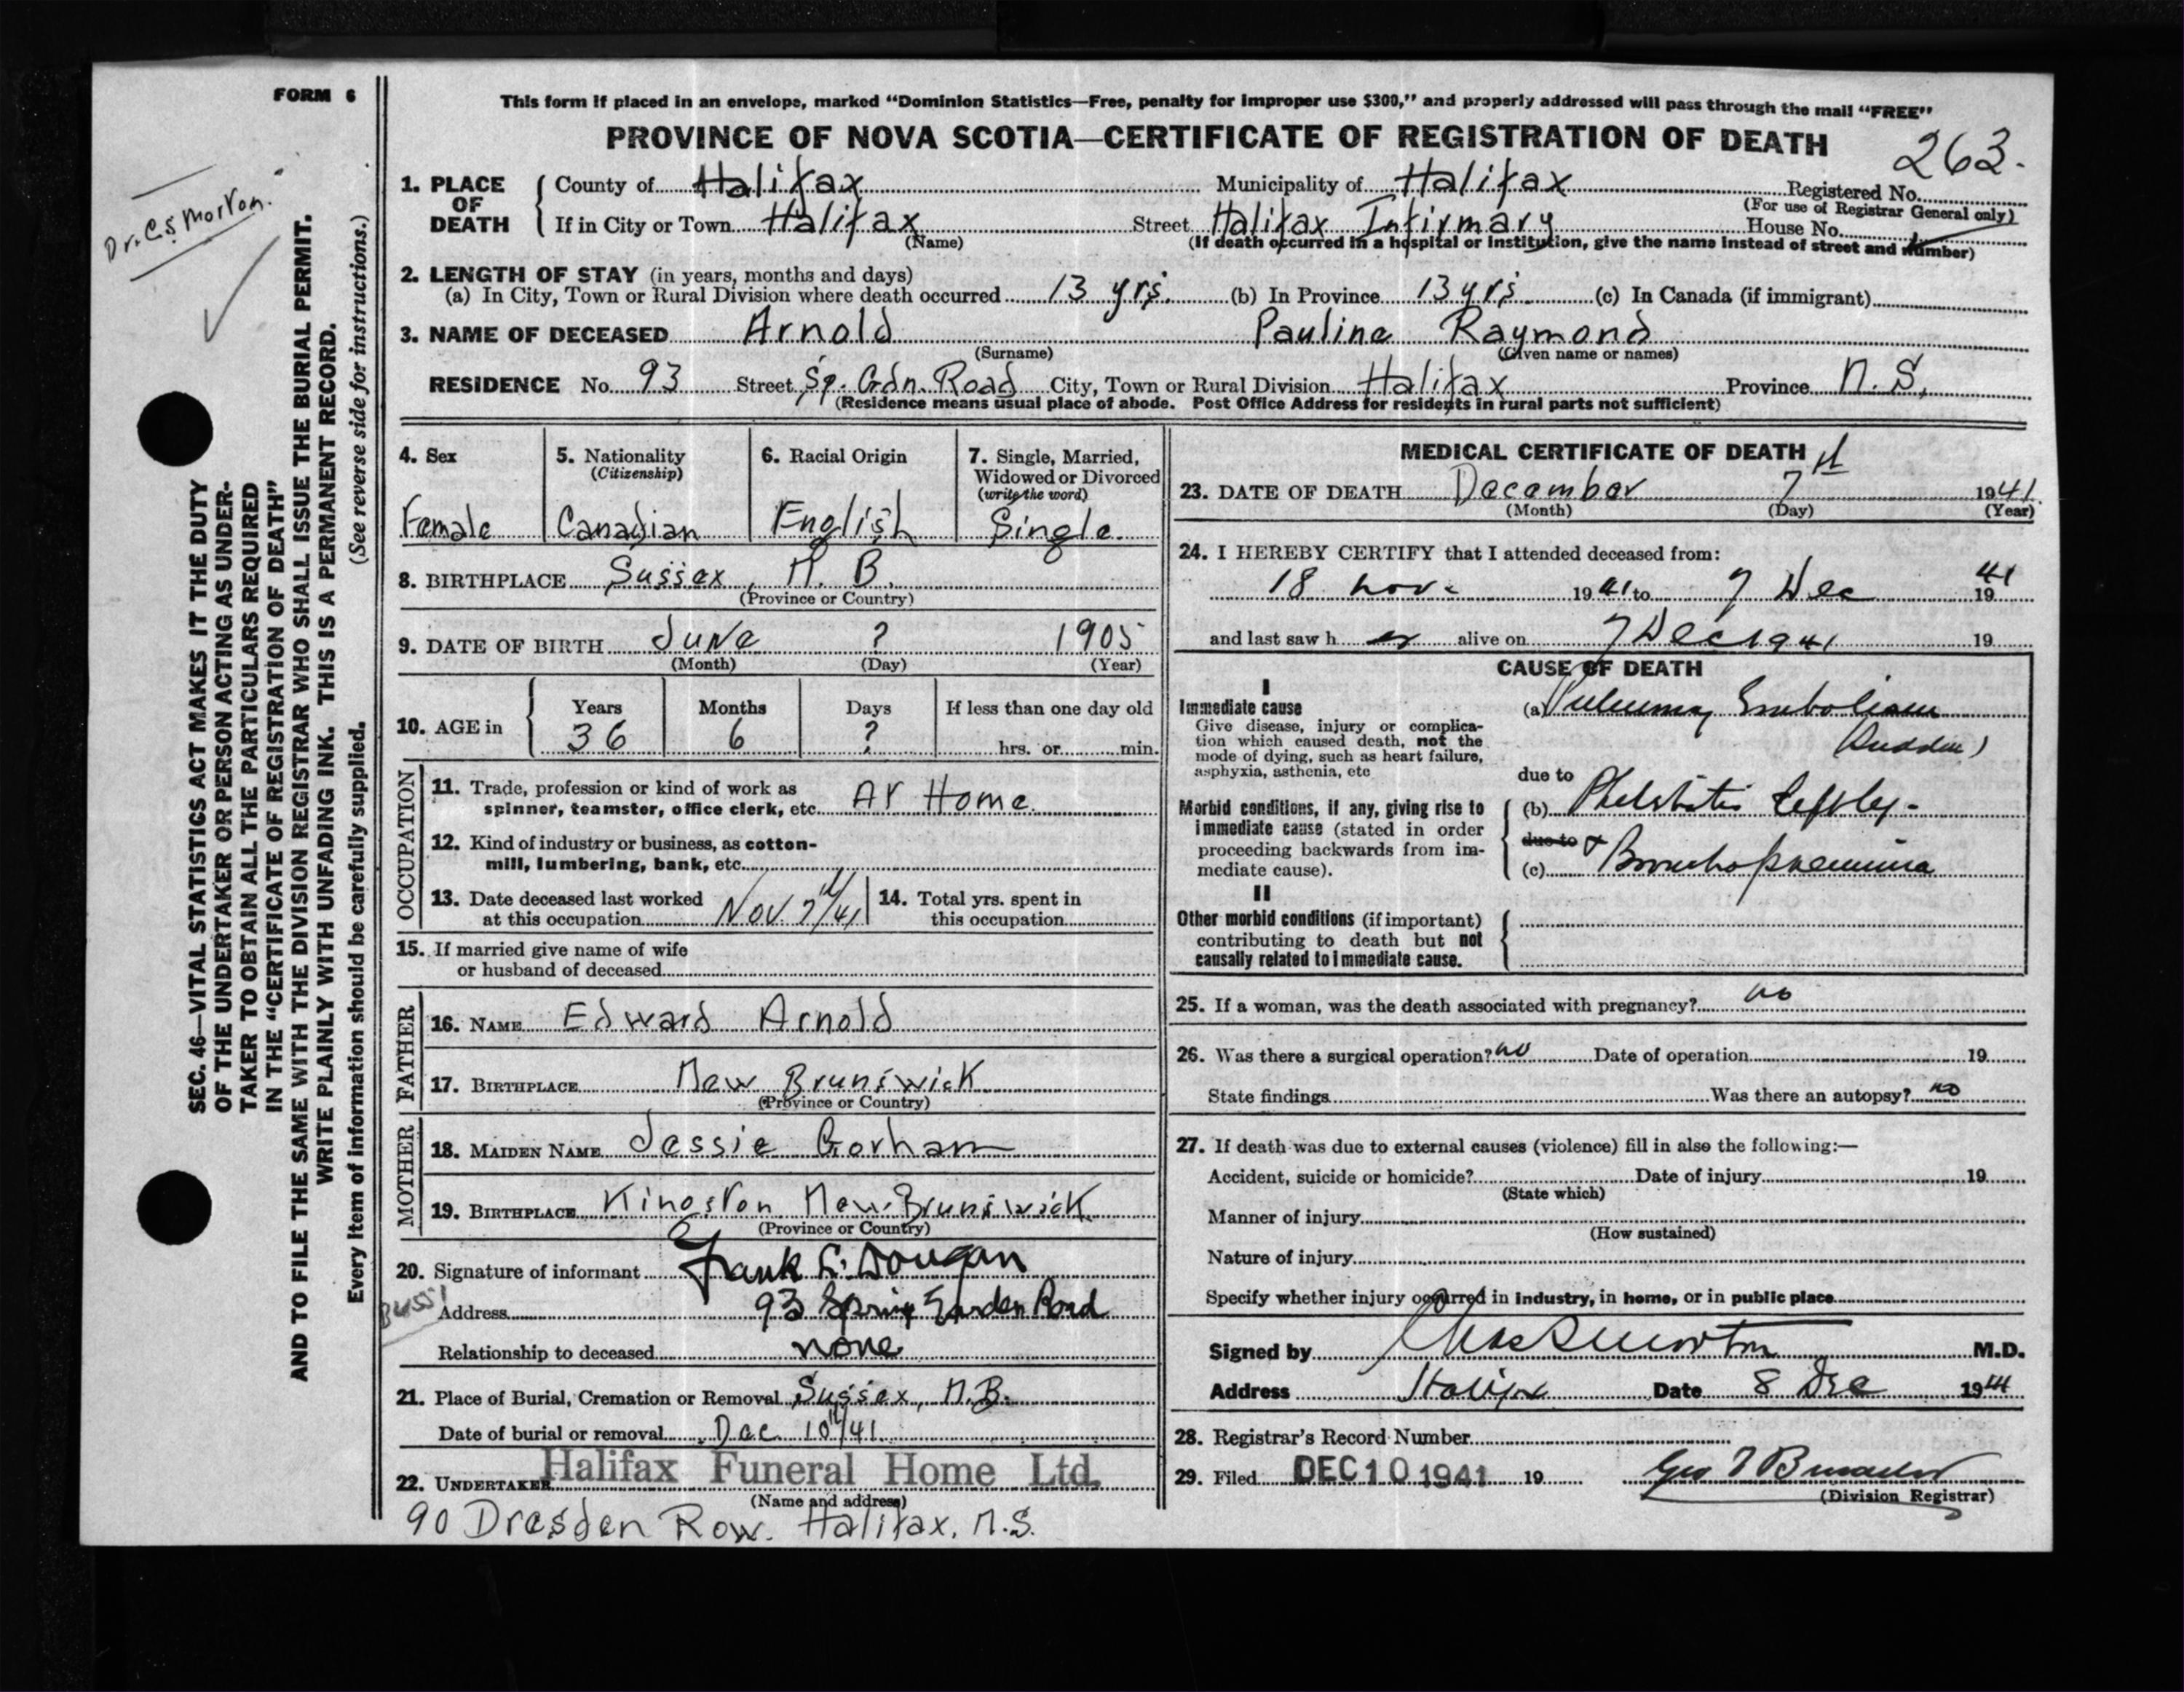 FORM 6
This form if placed in an envelope, marked "Dominion Statistics—Free, penalty for improper use $300," and properly addressed will pass through the mail "FREE"
PROVINCE OF NOVA SCOTIA—CERTIFICATE OF REGISTRATION OF DEATH
263.
Dr. C.S Morton.
SEC. 46—VITAL STATISTICS ACT MAKES IT THE DUTY
OF THE UNDERTAKER OR PERSON ACTING AS UNDER-
TAKER TO OBTAIN ALL THE PARTICULARS REQUIRED
IN THE "CERTIFICATE OF REGISTRATION OF DEATH"
AND TO FILE THE SAME WITH THE DIVISION REGISTRAR WHO SHALL ISSUE THE BURIAL PERMIT.
WRITE PLAINLY WITH UNFADING INK. THIS IS A PERMANENT RECORD.
Every item of information should be carefully supplied. (See reverse side for instructions.)
1. PLACE OF DEATH County of Halifax Municipality of Halifax Registered No.
(For use of Registrar General only)
If in City or Town Halifax Street Halifax Infirmary House No.
(Name) (If death occurred in a hospital or institution, give the name instead of street and number)
2. LENGTH OF STAY (in years, months and days)
(a) In City, Town or Rural Division where death occurred 13 yrs. (b) In Province 13 yrs (c) In Canada (if immigrant)
3. NAME OF DECEASED Arnold Pauline Raymond
(Surname) (Given name or names)
RESIDENCE No. 93 Street Sp. Gdn. Road City, Town or Rural Division Halifax Province N. S.
(Residence means usual place of abode. Post Office Address for residents in rural parts not sufficient)
4. Sex
Female
5. Nationality
(Citizenship)
Canadian
6. Racial Origin
English
7. Single, Married,
Widowed or Divorced
(write the word)
Single.
8. BIRTHPLACE Sussex, N. B.
(Province or Country)
9. DATE OF BIRTH June ? 1905
(Month) (Day) (Year)
10. AGE in Years Months Days If less than one day old
36 6 ? hrs. or min.
OCCUPATION
11. Trade, profession or kind of work as
spinner, teamster, office clerk, etc. At Home.
12. Kind of industry or business, as cotton-
mill, lumbering, bank, etc.
13. Date deceased last worked
at this occupation Nov 7th/41
14. Total yrs. spent in
this occupation
15. If married give name of wife
or husband of deceased
FATHER
16. NAME Edward Arnold
17. BIRTHPLACE New Brunswick
(Province or Country)
MOTHER
18. MAIDEN NAME Jessie Gorham
19. BIRTHPLACE Kingston New Brunswick
(Province or Country)
20. Signature of informant Frank C. Dougan
Address 93 Spring Garden Road
Relationship to deceased none
21. Place of Burial, Cremation or Removal Sussex, N.B.
Date of burial or removal Dec 10th/41
22. UNDERTAKER Halifax Funeral Home Ltd.
(Name and address)
90 Dresden Row. Halifax, N.S.
MEDICAL CERTIFICATE OF DEATH
23. DATE OF DEATH December 7th 1941
(Month) (Day) (Year)
24. I HEREBY CERTIFY that I attended deceased from:
18 Nov. 1941 to 7 Dec 1941
and last saw her alive on 7 Dec 1941 19
CAUSE OF DEATH
I
Immediate cause
Give disease, injury or complica-
tion which caused death, not the
mode of dying, such as heart failure,
asphyxia, asthenia, etc
(a) Pulmonary Embolism
(Sudden)
due to
Morbid conditions, if any, giving rise to
immediate cause (stated in order
proceeding backwards from im-
mediate cause).
(b) Phlebitis left leg -
due to &
(c) Broncho pneumonia
II
Other morbid conditions (if important)
contributing to death but not
causally related to immediate cause.
25. If a woman, was the death associated with pregnancy? no
26. Was there a surgical operation? no Date of operation 19
State findings Was there an autopsy? no
27. If death was due to external causes (violence) fill in also the following:—
Accident, suicide or homicide? Date of injury 19
(State which)
Manner of injury
(How sustained)
Nature of injury
Specify whether injury occurred in industry, in home, or in public place
Signed by Chas S Morton M.D.
Address Halifax Date 8 Dec 1941
28. Registrar's Record Number
29. Filed DEC 10 1941 19
(Division Registrar)